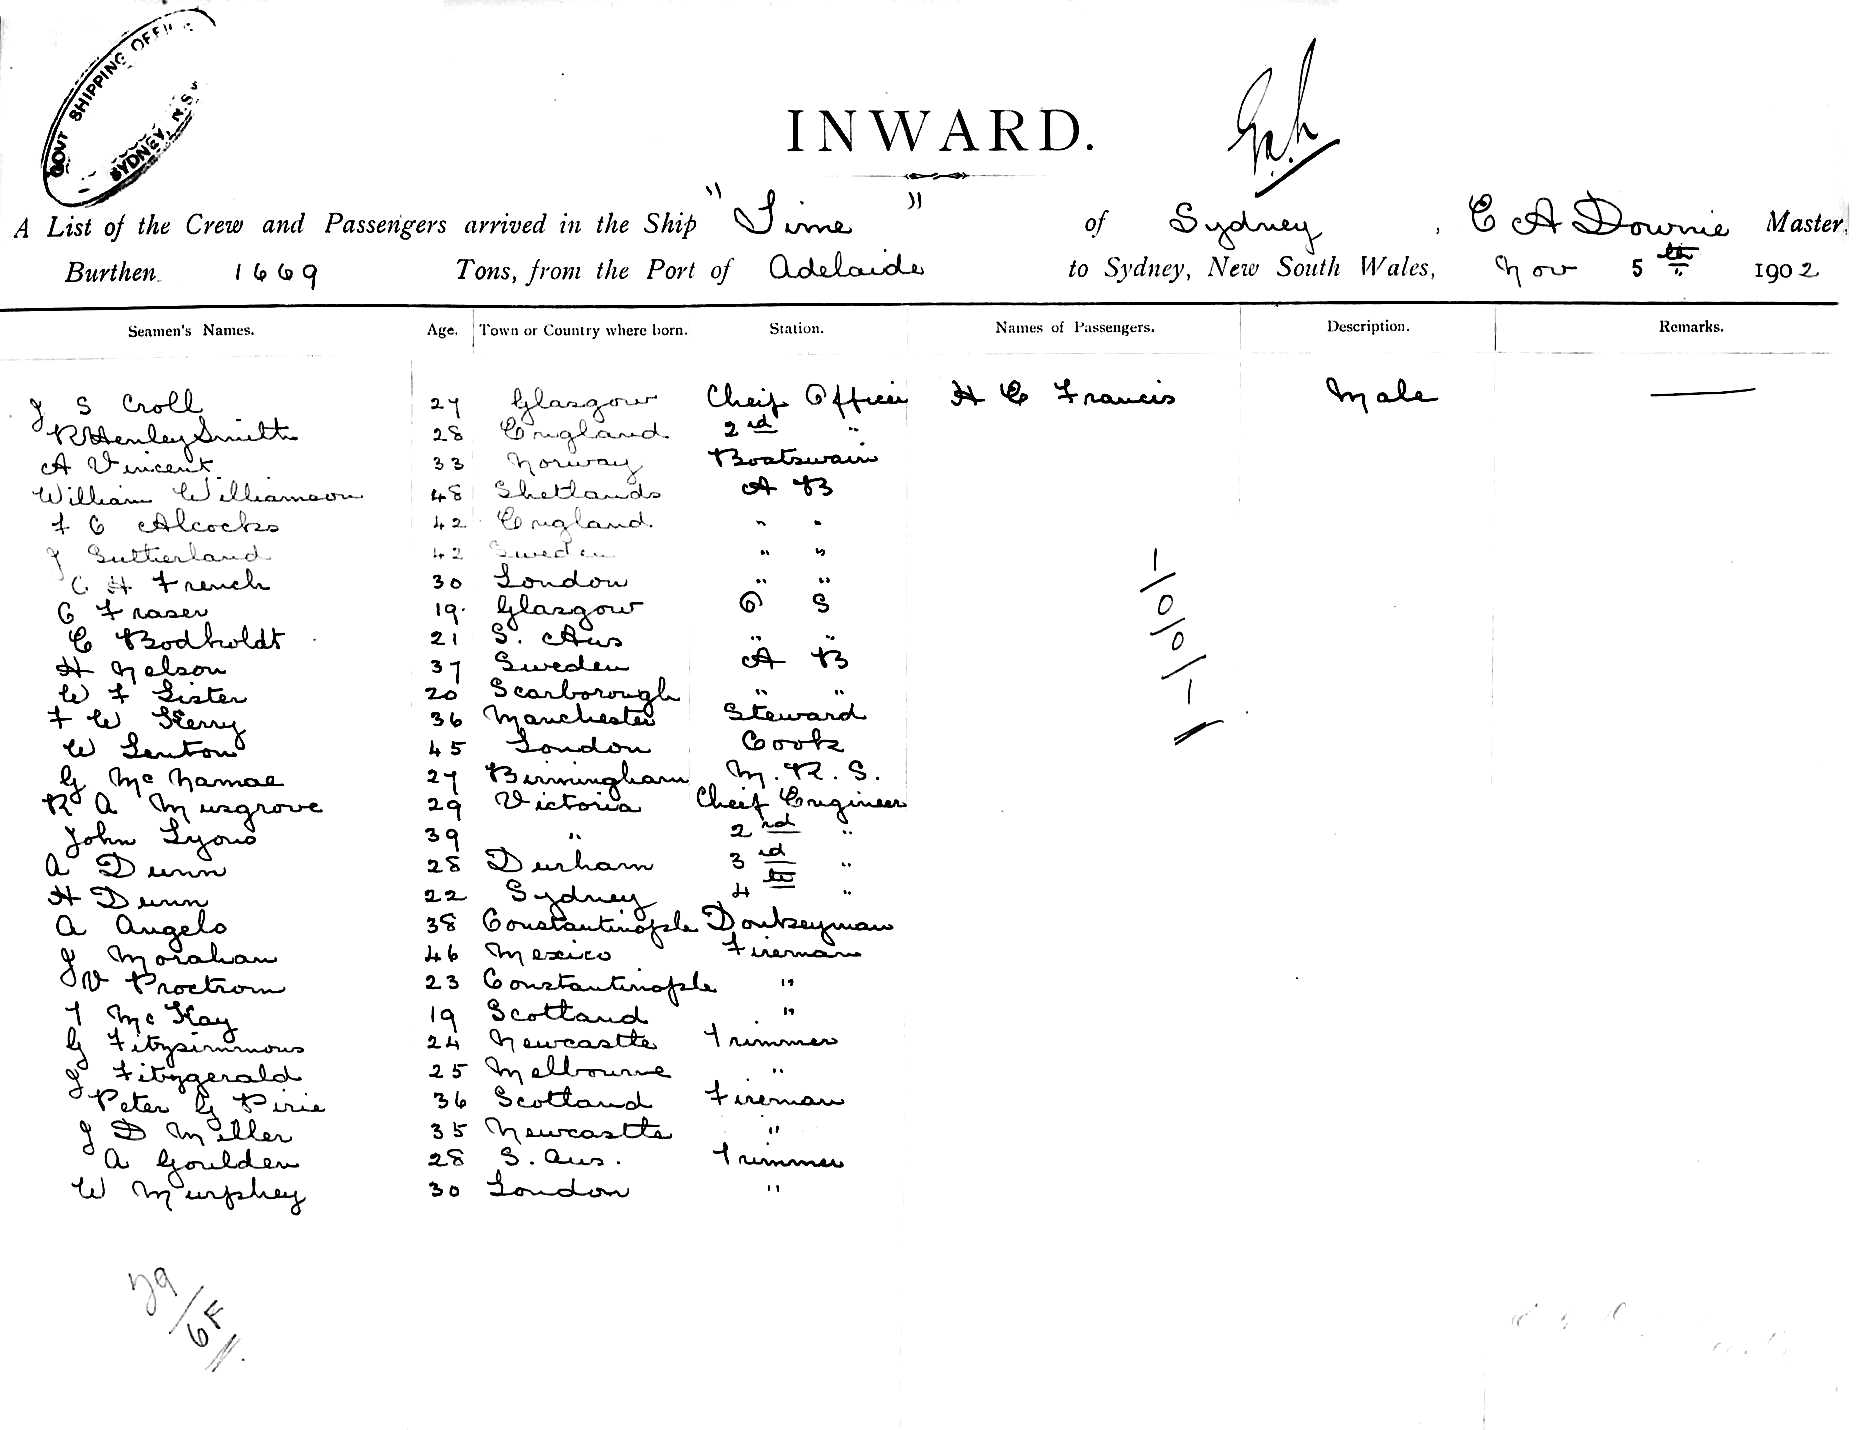 GOVT SHIPPING OFFICE
SYDNEY, N.S.
INWARD.
A List of the Crew and Passengers arrived in the Ship "Time" of Sydney, C A Downie Master,
Burthen 1669 Tons, from the Port of Adelaide to Sydney, New South Wales, Nov 5th 1902
Seamen's Names. Age. Town or Country where born. Station. Names of Passengers. Description. Remarks.
J S Croll 27 Glasgow Cheif Officer H C Francis Male —
R Henley Smith 28 England 2rd "
A Vincent 33 Norway Boatswain
William Williamson 48 Shetlands A B
F C Alcocks 42 England " "
J Sutherland 42 Sweden " "
C H French 30 London " "
C Fraser 19 Glasgow O S
C Bodholdt 21 S. Aus " "
H Nelson 37 Sweden A B
W F Lister 20 Scarborough " "
F W Kerry 36 Manchester Steward
W Lenton 45 London Cook
G McNamae 27 Birmingham M. R. S.
R A Musgrove 29 Victoria Cheif Engineer
John Lyons 39 " 2rd "
A Dunn 28 Durham 3rd "
H Dunn 22 Sydney 4th "
A Angelo 38 Constantinople Donkeyman
J Morahan 46 Mexico Fireman
J V Proctrom 23 Constantinople "
T McKay 19 Scotland "
G Fitzsimmons 24 Newcastle Trimmer
J Fitzgerald 25 Melbourne "
Peter G Pirie 36 Scotland Fireman
J D Miller 35 Newcastle "
A Goulden 28 S. Aus. Trimmer
W Murphey 30 London "
1/0/0/1
29/6F